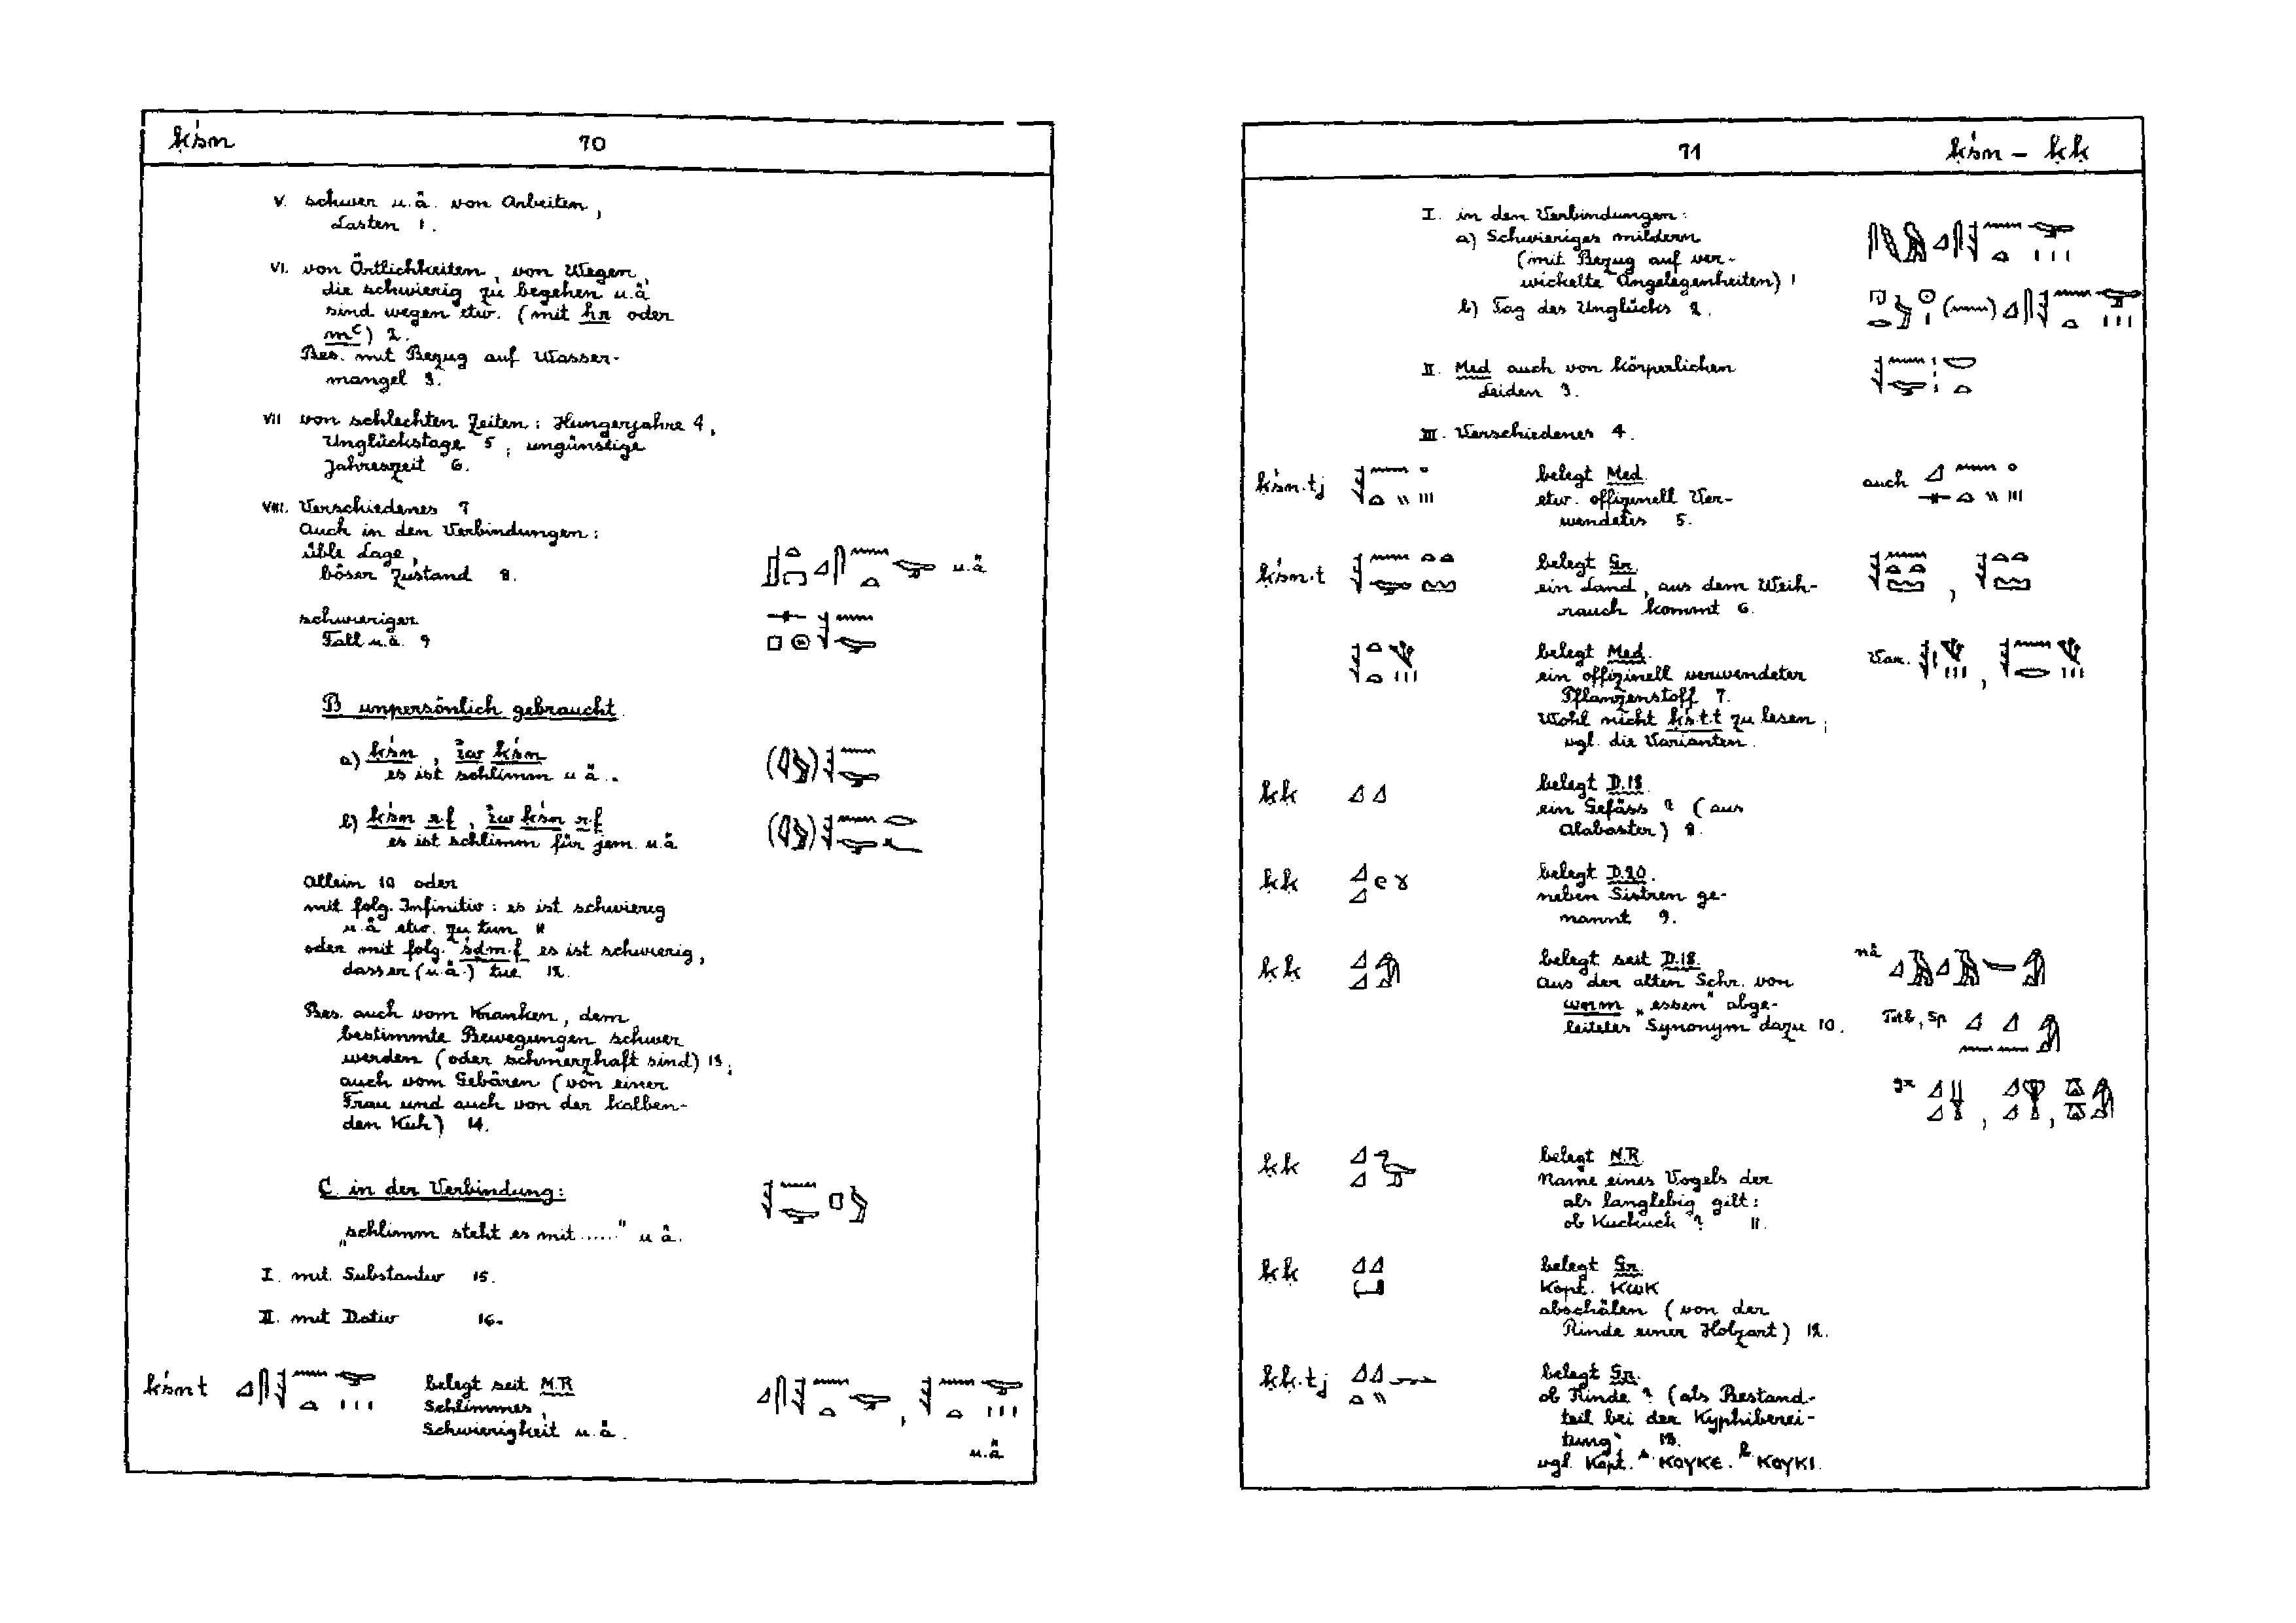 ḳśn 70
V. schwer u.ä. von Arbeiten,
Lasten 1.
VI. von Örtlichkeiten, von Wegen,
die schwierig zu begehen u.ä
sind wegen etw. (mit ḥr oder
mꜥ) 2.
Bes. mit Bezug auf Wasser-
mangel 3.
VII von schlechten Zeiten: Hungerjahre 4,
Unglückstage 5; ungünstige
Jahreszeit 6.
VIII. Verschiedenes 7
Auch in den Verbindungen:
üble Lage,
böser Zustand 8. u.ä
schwieriger
Fall u.ä. 9
B unpersönlich gebraucht.
a) ḳśn, ỉw ḳśn
es ist schlimm u ä..
b) ḳśn r.f, ỉw ḳśn r.f
es ist schlimm für jem. u.ä
Allein 10 oder
mit folg. Infinitiv: es ist schwierig
u.ä etw. zu tun 11
oder mit folg. śḏm.f es ist schwierig,
dass er (u.ä.) tue 12.
Bes. auch vom Kranken, dem
bestimmte Bewegungen schwer
werden (oder schmerzhaft sind) 13;
auch vom Gebären (von einer
Frau und auch von der kalben-
den Kuh) 14.
C. in der Verbindung:
„schlimm steht es mit ......" u ä.
I. mit Substantiv 15.
II. mit Dativ 16.
ḳśnt belegt seit M.R
Schlimmes,
Schwierigkeit u.ä.
u.ä
71 ḳśn – ḳḳ
I. in den Verbindungen:
a) Schwieriges mildern
(mit Bezug auf ver-
wickelte Angelegenheiten) 1
b) Tag des Unglücks 2.
II. Med auch von körperlichen
Leiden 3.
III. Verschiedenes 4.
ḳśn.tj belegt Med. auch
etw. offizinell Ver-
wendetes 5.
ḳśn.t belegt Gr.
ein Land, aus dem Weih-
rauch kommt 6.
belegt Med. Var.
ein offizinell verwendeter
Pflanzenstoff 7.
Wohl nicht ḳś.t.t zu lesen;
vgl. die Varianten.
ḳḳ belegt D.18
ein Gefäss? (aus
Alabaster) 8.
ḳḳ belegt D.20.
neben Sistren ge-
nannt 9.
ḳḳ belegt seit D.18. nä
Aus der alten Schr. von
wnm „essen" abge-
leitetes Synonym dazu 10. Totb, Sp
gr
ḳḳ belegt N.R.
Name eines Vogels der
als langlebig gilt:
ob Kuckuck? 11.
ḳḳ belegt Gr.
Kopt. ⲕⲱⲕ
abschälen (von der
Rinde einer Holzart) 12.
ḳḳ.tj belegt Gr.
ob Rinde? (als Bestand-
teil bei der Kyphiberei-
tung) 13.
vgl. Kopt. s. ⲕⲟⲩⲕⲉ. b. ⲕⲟⲩⲕⲓ.